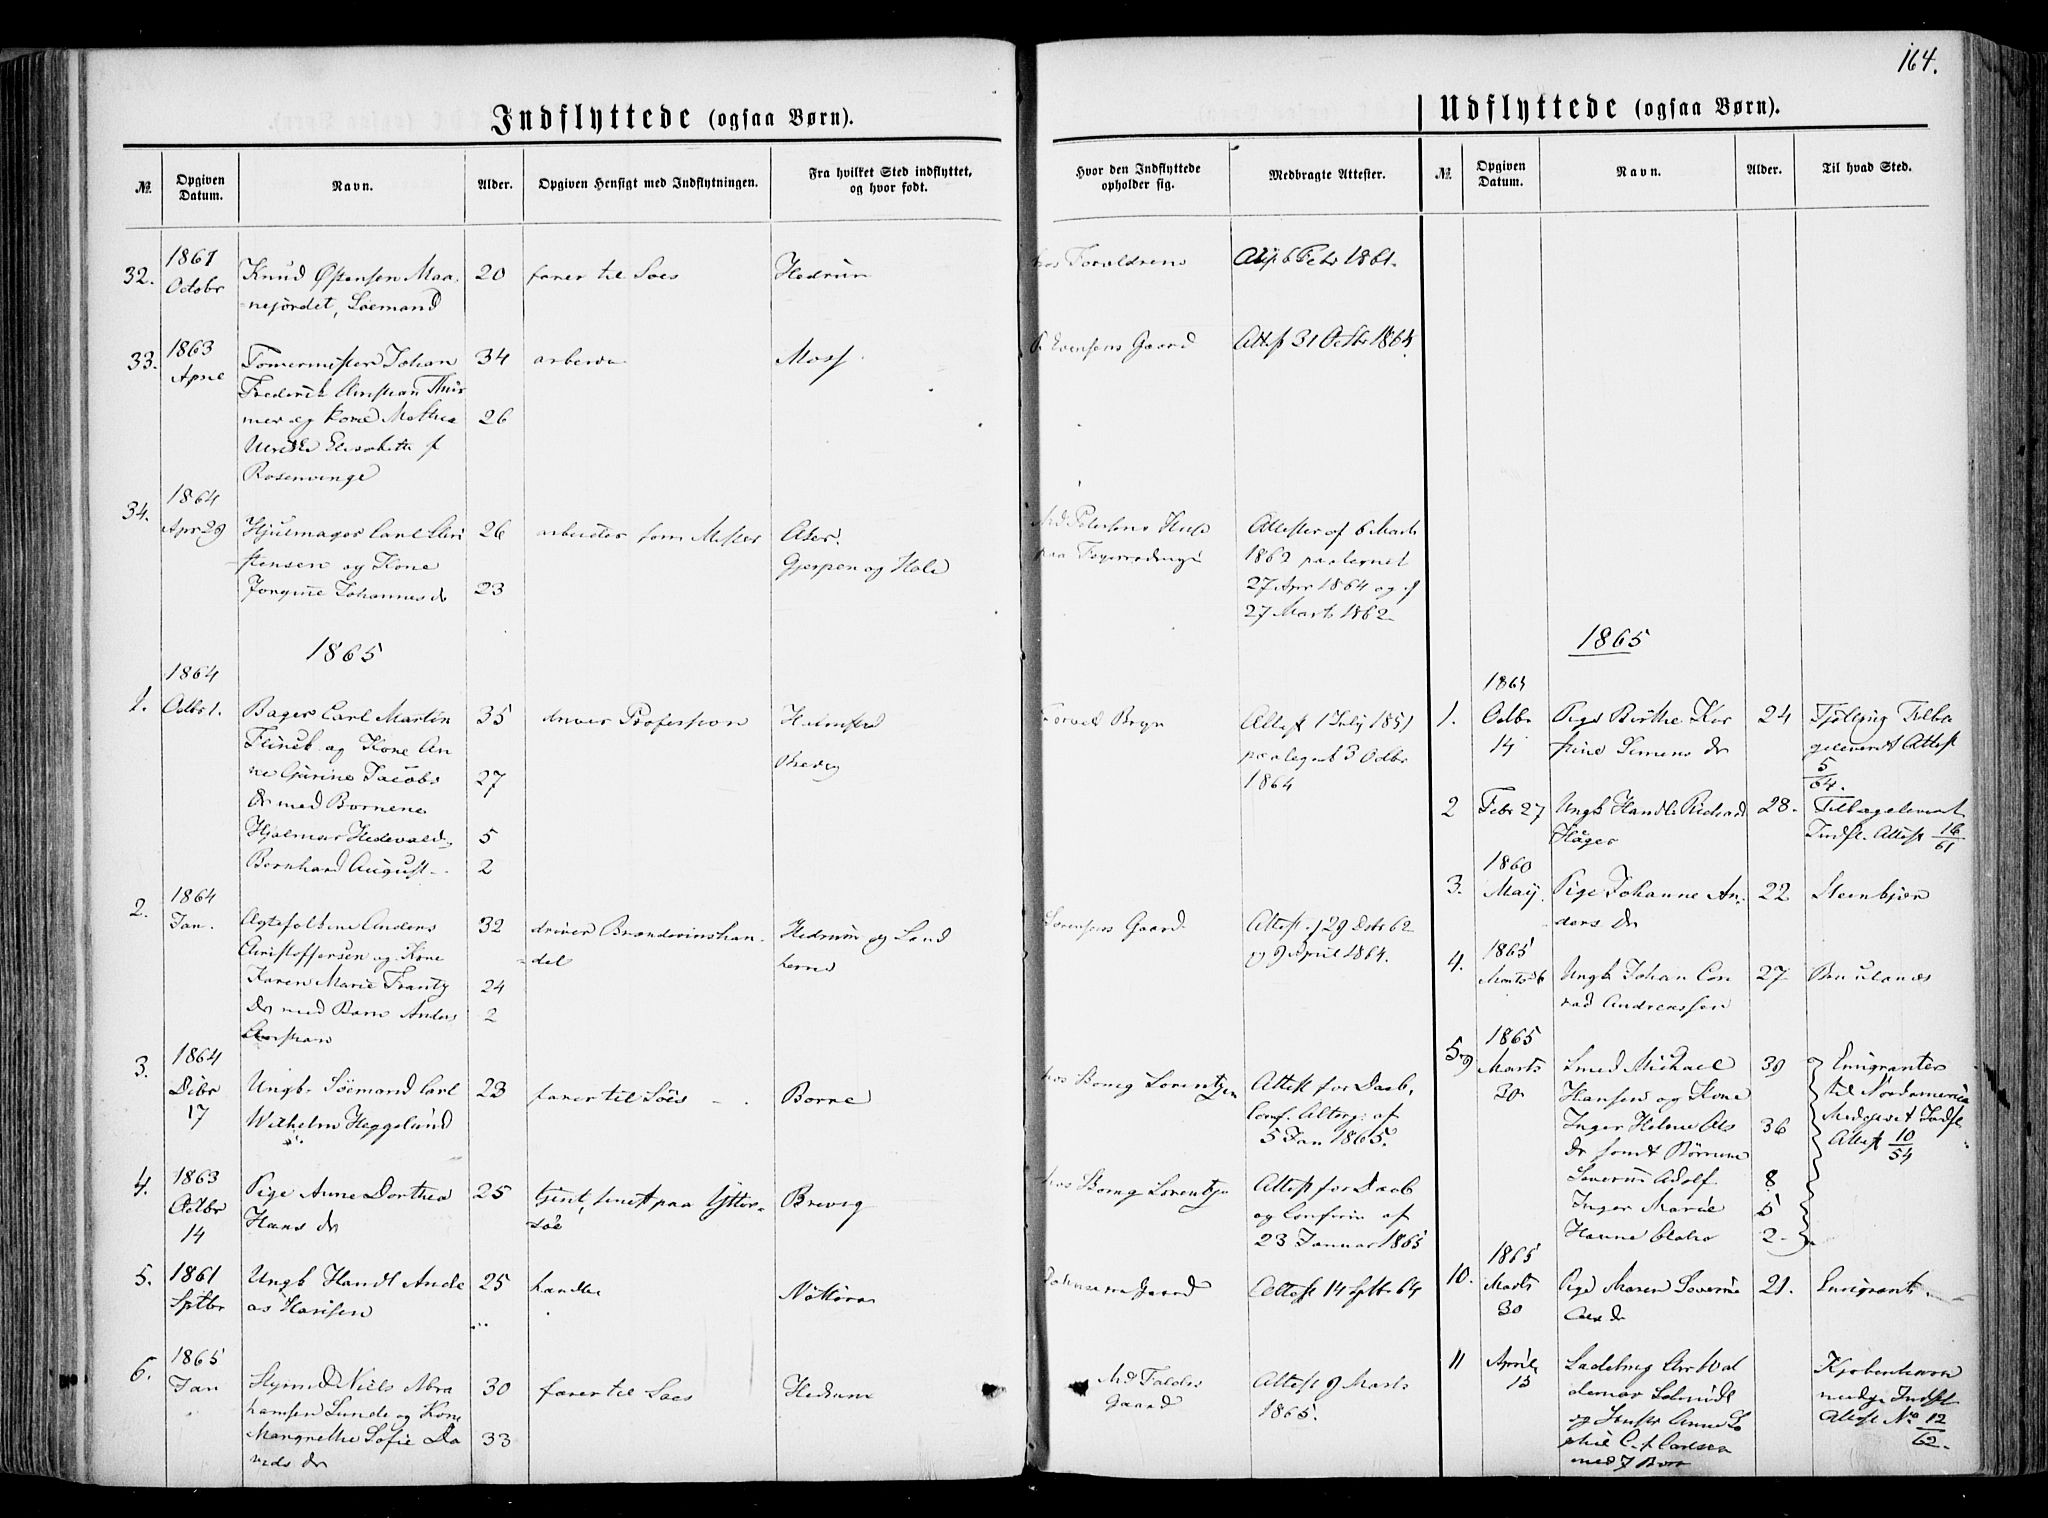 164.
Indflyttede (ogsaa Børn).
Udflyttede (ogsaa Børn).
№
Opgiven Datum.
Navn.
Alder.
Opgiven Hensigt med Indflytningen.
Fra hvilket Sted indflyttet, og hvor født.
Hvor den Indflyttede opholder sig.
Medbragte Attester.
№
Opgiven Datum.
Navn.
Alder.
Til hvad Sted.
32.
1861
Octobr
Knud ØStensen Maa-
nejordet, Søemand
20
farer til Søes
Hedrum
hos Forældrene
33.
1863
Tømermester Johan
Frederik Christian
mer og Kone Mathea
Ulrikke Elisabeth f
Rosenvinge
34
26
Moss
P. Evensens Gaard
Attest 31 Octbr 1864.
34.
1864
Apr 29
Hjulmager Carl Chri
stensen og Kone
Jørgine Johannesdr
26
23
arbeider som Mester
Gjerpen og Hole
Attester af 6 Marts
1862 paategnet
27 Apr 1864 og
27 Marts 1862.
1865
1.
1864
Octbr 1.
Bager Carl Martin
og Kone An
ne Gurine Jacobs
Dr med Børnene
Hjalmar Hedevald
Bernhard August
35
27
5
2
driver Profession
Torvet Bryn
Attest 1 July 1851
paategnet 3 Octbr
1864
2.
1864
Jan.
Ægtefolkene Anders
Christoffersen og Kone
Karen Marie Frantz
Dr med Barn Anders
Christian
32
24
2
driver Brændevinshan-
del
Hedrum og Land
Sørensens Gaard
Attest 29 Octbr 62
og 9 April 1864.
3.
1864
Debr
17
Ungk. Søemand Carl
Wilhelm Heggelund
23
farer til Søes
Borre
hos Lorentzen
Attest for Daab,
Conf. Alterg: af
5 Jan 1865.
4.
1863
Octbr
14
Pige Anne Dorthea
Hans dr
25
tjent, senest paa Ytter-
søe
Brevig
Attest for Daab
og Confirm af
23 Januar 1865
5.
1861
Sptbr
Ungk Handl Ande
as Hansen
25
handle
Nøtterø
Johnsens Gaard
Attest 14 Sptbr 64
6.
1865
Jan
Styrmd Niels Abra
hamsen Lunde og Kone
Margrethe Sofie Da
vids dr
30
33
farer til Søes
Hedrum
Md Falders
Gaard
Attest 9 Marts
1865.
1865
1.
1864
Octbr
14
Pige Birthe Kir
stine Simens dr
24
Tjølling Tilba
geleveret Attest
5/64.
2
Febr 27
Ungk Handl. Richard
Hager
28.
Tilbageleveret
Indfl. Attest 16/61
3.
1860
Maij
Pige Johanne An-
ders dr
22
Steenkjær
4.
1865
Marts 6
Ungk Johan Con
rad Andreassen
27
5-9
1865
Marts
30
Smed Michael
Hansen og Kone
Inger Helene Ols
dr samt Børnene
Severin Adolf
Inger Marie
Hanne
39
36
8
5
2
Emigranter
til Nordamerica
Medgivet Indfl.
Attest 10/54
10.
1865
Marts
30
Pige Maren Severine
21.
Emigrant
11
April
15
Ladebrug Chr Wal
demar Schmidt
og Anne So
phie C. f Carlsen
med 7 Børn
Kjøbenhavn
medg. Indfl
Attest No 12/62.